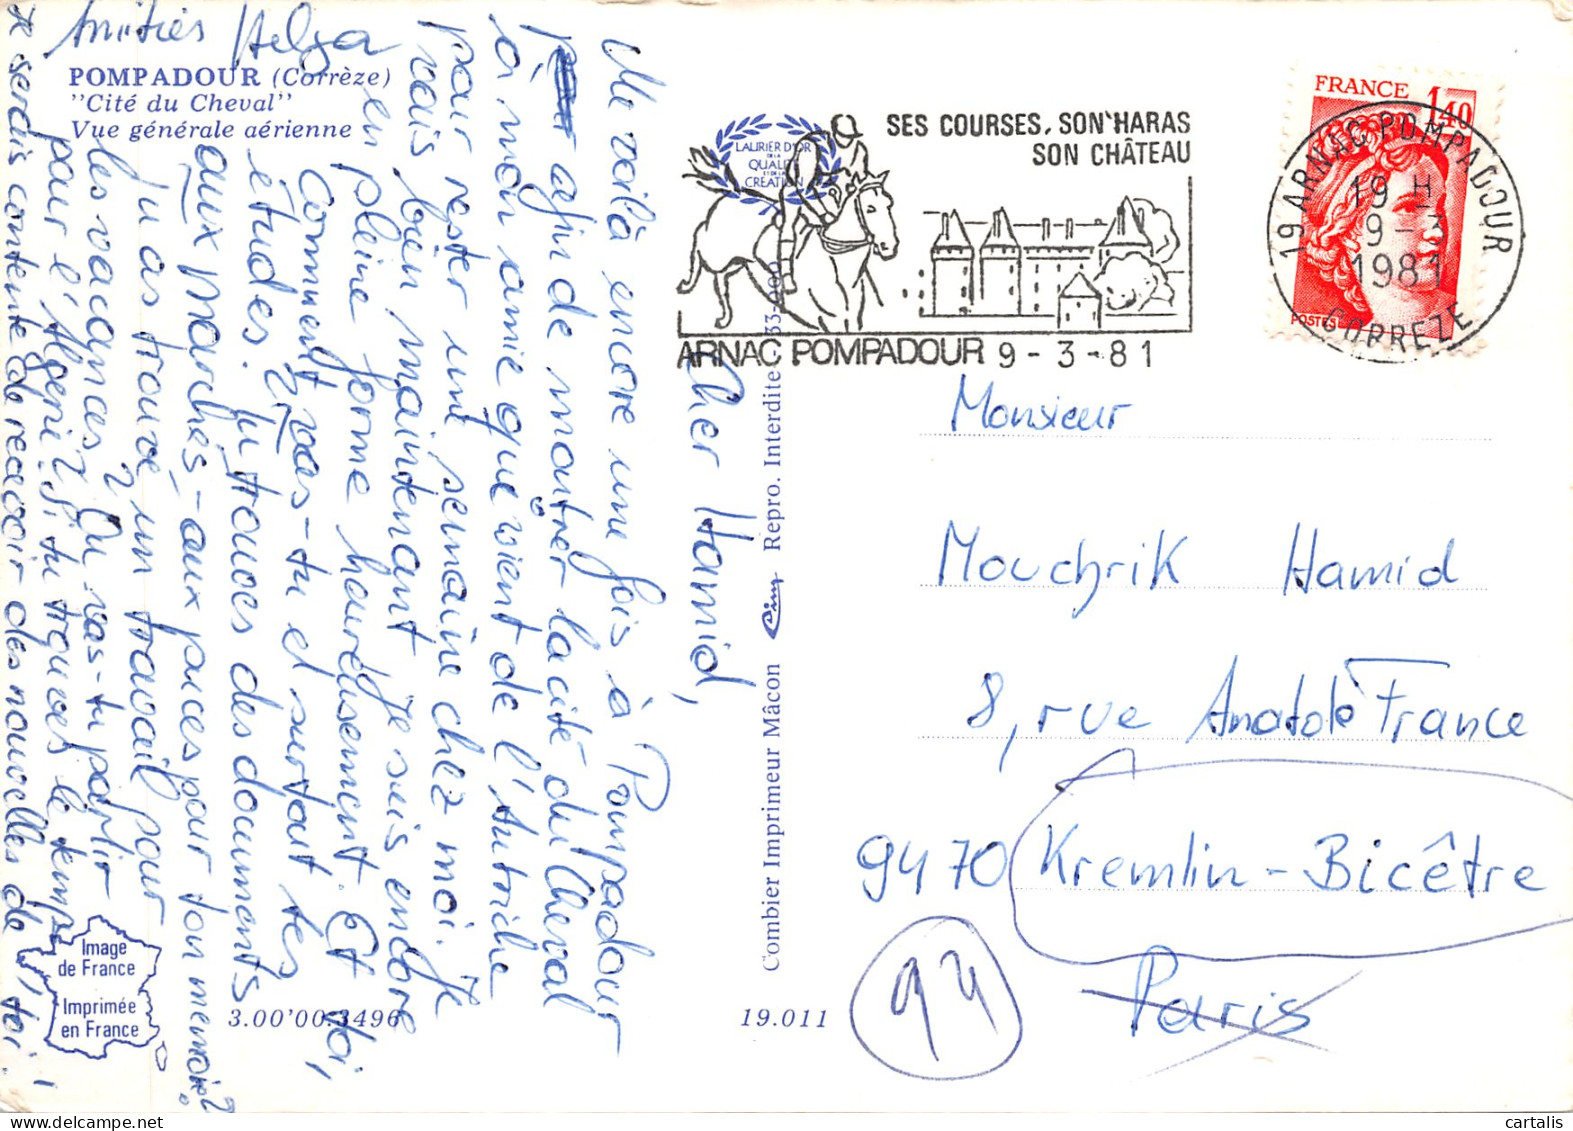 POMPADOUR (Corrèze)
"Cité du Cheval"
Vue générale aérienne
Cher Hamid,
Me voilà encore une fois à Pompadour
afin de montrer la cité du Cheval
à mon amie qui vient de l'Autriche
pour rester une semaine chez moi. Je
vais bien maintenant je suis encore
en pleine forme heureusement. Et toi,
Comment vas-tu et surtout tes
études? Tu trouves des documents
aux marchés-aux puces pour ton memoire?
Tu as trouvé un travail pour
les vacances? Ou vas-tu partir
pour l'Algerie? Si tu trouves le temps
je serais contente de recevoir des nouvelles de toi!
Amitiés Helga
LAURIER D'OR
DE LA
QUALITÉ
ET DE LA
CRÉATION
SES COURSES, SON HARAS
SON CHÂTEAU
ARNAC POMPADOUR 9-3-81
FRANCE
1,40
POSTES
19 ARNAC POMPADOUR
19 H
9-3
1981
CORREZE
Monsieur
Mouchrik Hamid
8, rue Anatole France
9470 Kremlin-Bicêtre
Paris
94
Combier Imprimeur Mâcon Cim Repro. Interdite
Image
de France
Imprimée
en France
3.00'00.3496
19.011
cartalis